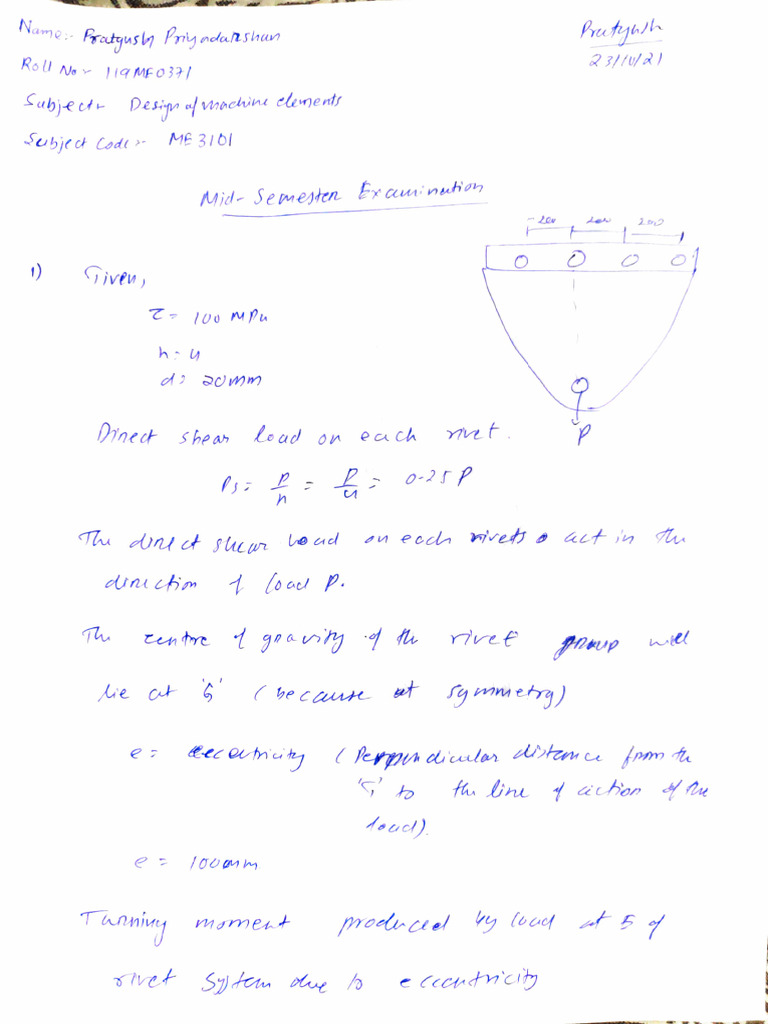 Name:- Pratyush Priyadarshan
Pratyush
23/10/21
Roll No:- 119ME0371
Subject:- Design of machine elements
Subject Code:- ME3101
Mid-Semester Examination
200 200 200
1) Given,
τ = 100 MPa
n = 4
d = 20mm
P
Direct shear load on each rivet.
Ps = P/n = P/4 = 0.25P
The direct shear load on each rivets act in the
direction of load P.
The centre of gravity of the rivet group will
lie at 'G' (because of symmetry)
e = eccentricity (Perpendicular distance from the
'G' to the line of action of the
load).
e = 100mm
Turning moment produced by load at 5 of
rivet system due to eccentricity